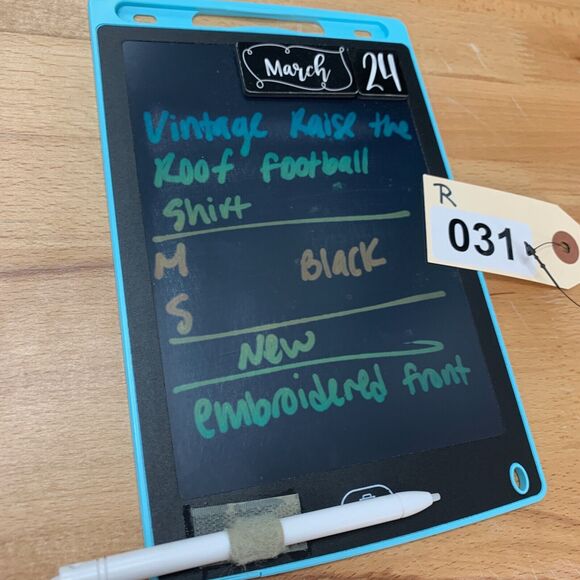 March 24
Vintage Raise the
Roof football
Shirt
M Black
S
New
embroidered front
R
031